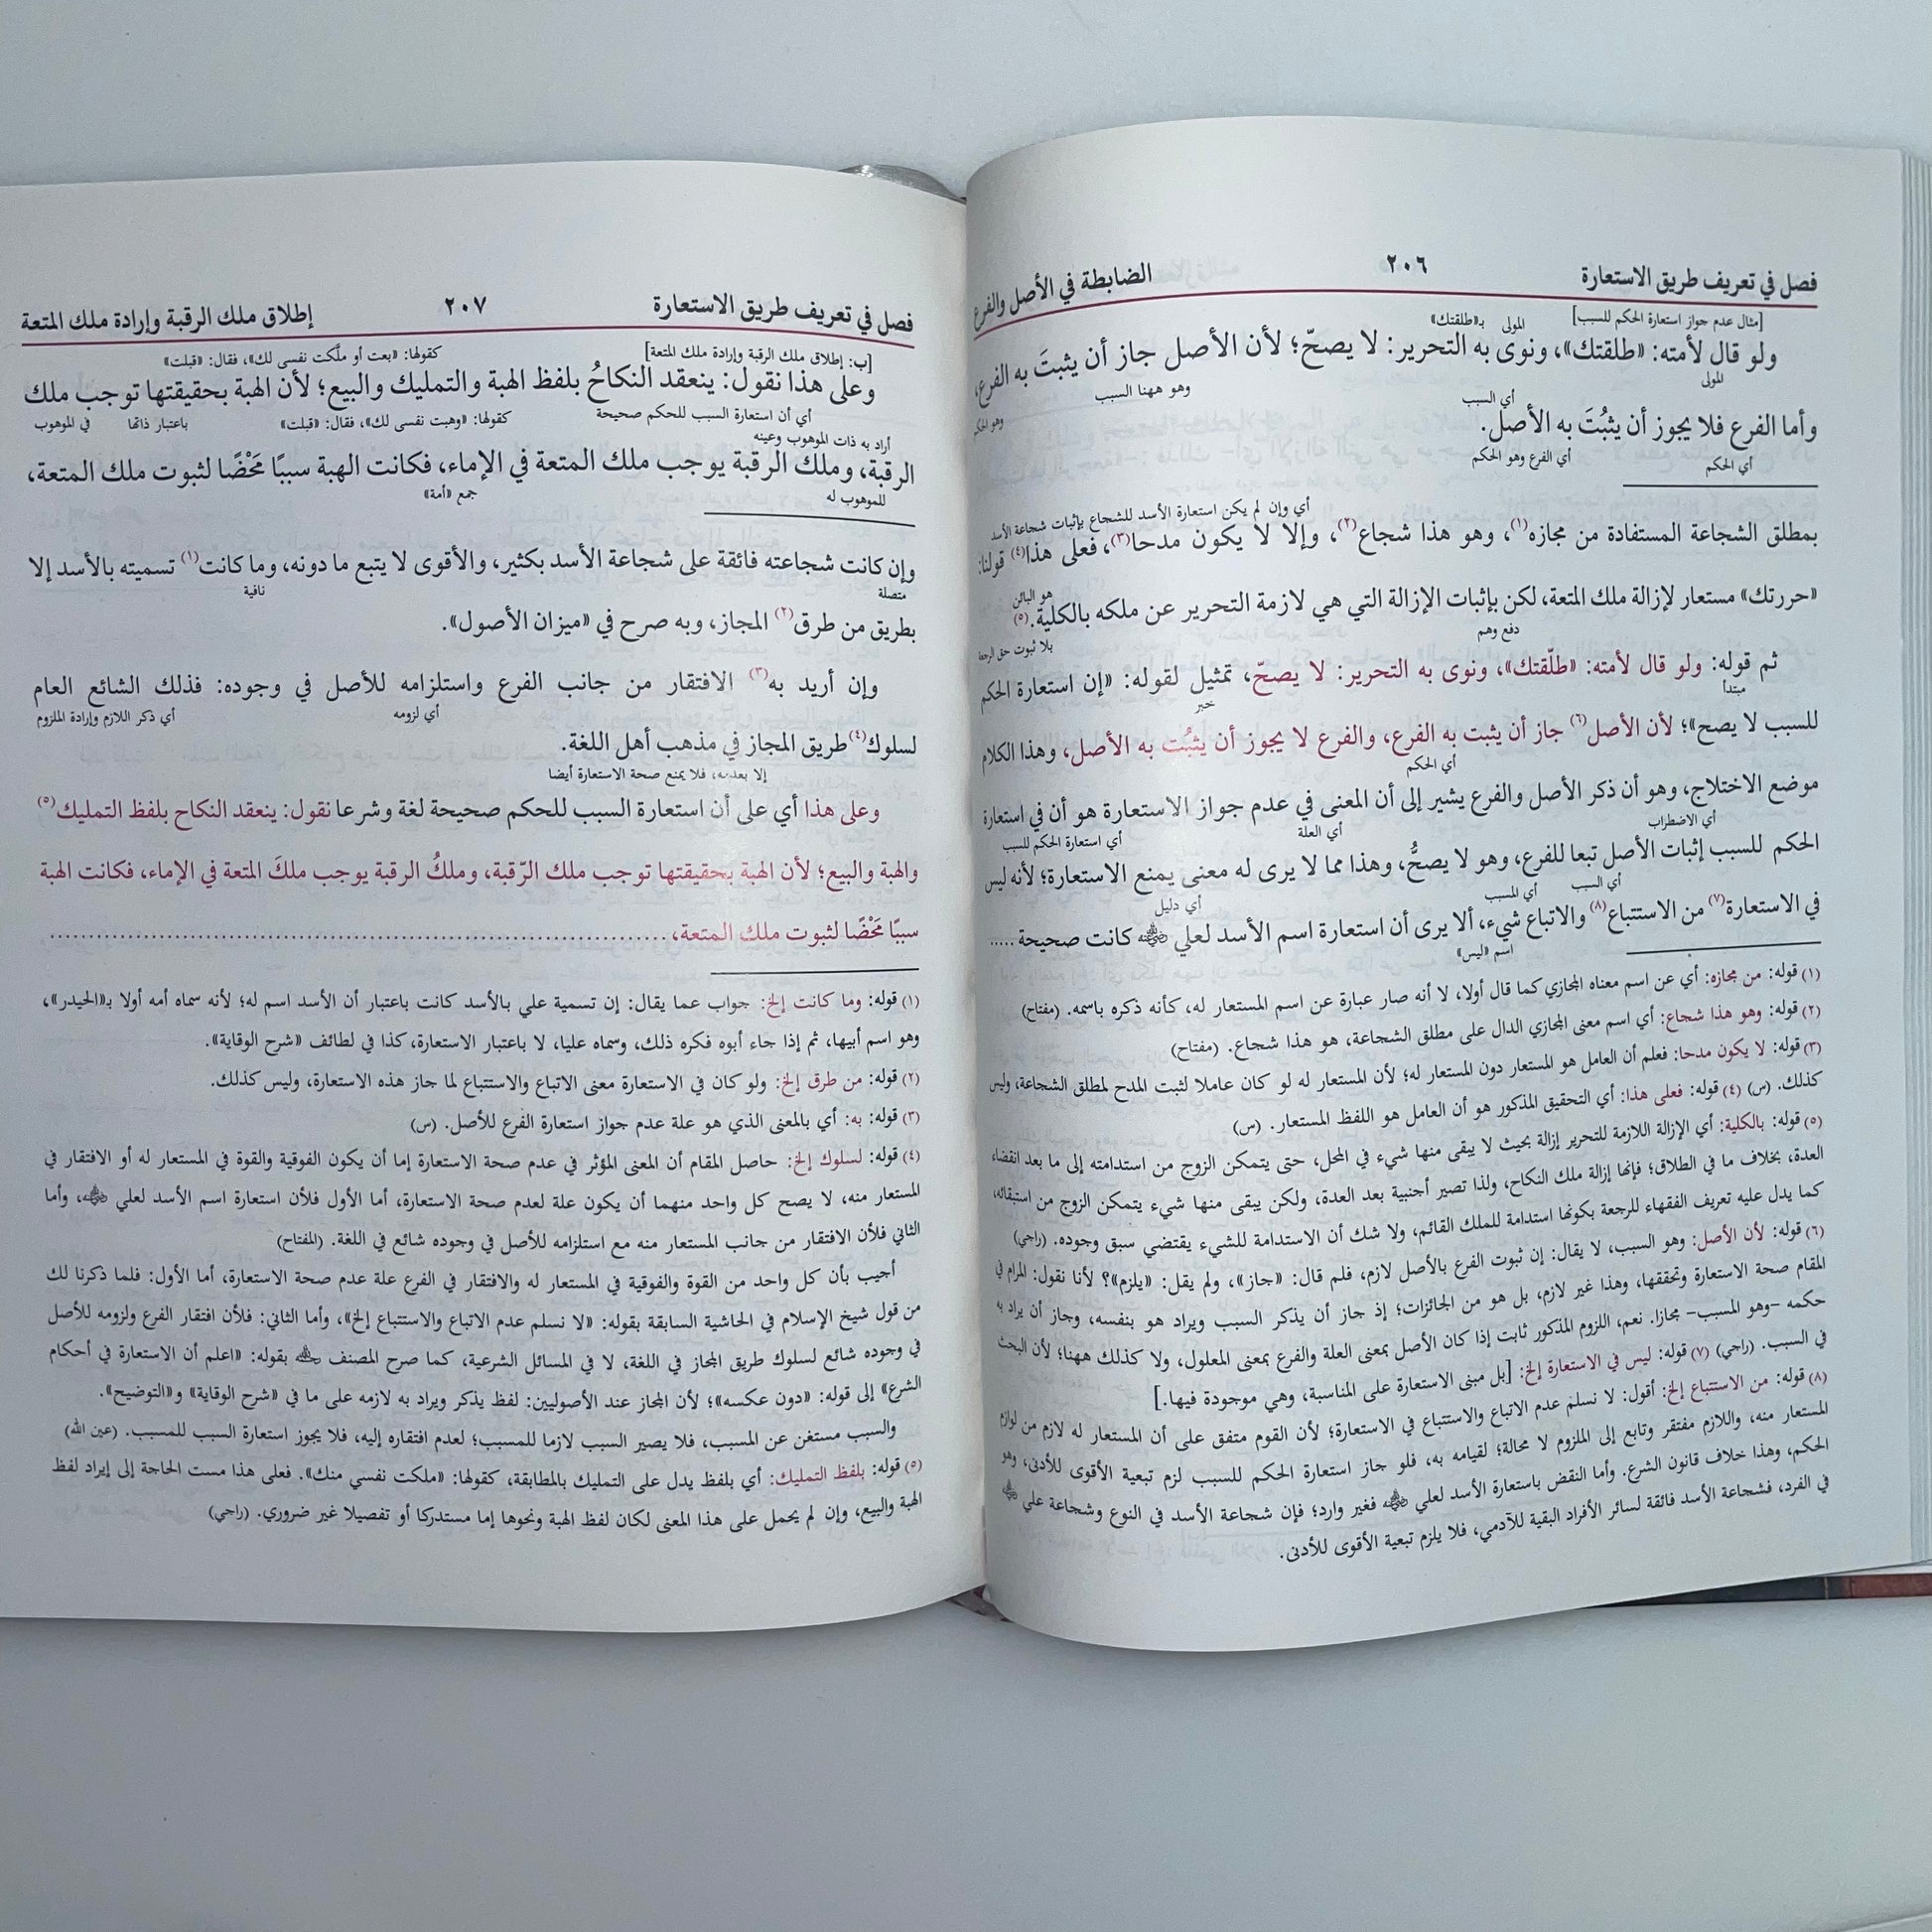 فصل في تعريف طريق الاستعارة ٢٠٦ الضابطة في الأصل والفرع
[مثال عدم جواز استعارة الحكم للسبب] المولى بـ«طلقتك»
ولو قال لأمته: «طلقتك»، ونوى به التحرير: لا يصحّ؛ لأن الأصل جاز أن يثبتَ به الفرع،
المولى وهو ههنا السبب وهو الحكم
أي السبب
وأما الفرع فلا يجوز أن يثبُتَ به الأصل.
أي الحكم أي الفرع وهو الحكم
أي وإن لم يكن استعارة الأسد للشجاع بإثبات شجاعة الأسد
بمطلق الشجاعة المستفادة من مجازه(١)، وهو هذا شجاع(٢)، وإلا لا يكون مدحا(٣)، فعلى هذا(٤) قولنا:
هو البائن
«حررتك» مستعار لإزالة ملك المتعة، لكن بإثبات الإزالة التي هي لازمة التحرير عن ملكه بالكلية.(٥)
دفع وهم بلا ثبوت حق الرجعة
ثم قوله: ولو قال لأمته: «طلّقتك»، ونوى به التحرير: لا يصحّ، تمثيل لقوله: «إن استعارة الحكم
مبتدأ خبر
للسبب لا يصح»؛ لأن الأصل(٦) جاز أن يثبت به الفرع، والفرع لا يجوز أن يثبُت به الأصل، وهذا الكلام
أي الحكم
موضع الاختلاج، وهو أن ذكر الأصل والفرع يشير إلى أن المعنى في عدم جواز الاستعارة هو أن في استعارة
أي الاضطراب أي العلة أي استعارة الحكم للسبب
الحكم للسبب إثبات الأصل تبعا للفرع، وهو لا يصحُّ، وهذا مما لا يرى له معنى يمنع الاستعارة؛ لأنه ليس
أي السبب أي المسبب أي دليل
في الاستعارة(٧) من الاستتباع(٨) والاتباع شيء، ألا يرى أن استعارة اسم الأسد لعلي ؓ كانت صحيحة.....
اسم «ليس»
(١) قوله: من مجازه: أي عن اسم معناه المجازي كما قال أولا، لا أنه صار عبارة عن اسم المستعار له، كأنه ذكره باسمه. (مفتاح)
(٢) قوله: وهو هذا شجاع: أي اسم معنى المجازي الدال على مطلق الشجاعة، هو هذا شجاع. (مفتاح)
(٣) قوله: لا يكون مدحا: فعلم أن العامل هو المستعار دون المستعار له؛ لأن المستعار له لو كان عاملا لثبت المدح لمطلق الشجاعة، وليس
كذلك. (س) (٤) قوله: فعلى هذا: أي التحقيق المذكور هو أن العامل هو اللفظ المستعار. (س)
(٥) قوله: بالكلية: أي الإزالة اللازمة للتحرير إزالة بحيث لا يبقى منها شيء في المحل، حتى يتمكن الزوج من استدامته إلى ما بعد انقضاء
العدة، بخلاف ما في الطلاق؛ فإنها إزالة ملك النكاح، ولذا تصير أجنبية بعد العدة، ولكن يبقى منها شيء يتمكن الزوج من استبقائه،
كما يدل عليه تعريف الفقهاء للرجعة بكونها استدامة للملك القائم، ولا شك أن الاستدامة للشيء يقتضي سبق وجوده. (راجي)
(٦) قوله: لأن الأصل: وهو السبب، لا يقال: إن ثبوت الفرع بالأصل لازم، فلم قال: «جاز»، ولم يقل: «يلزم»؟ لأنا نقول: المرام في
المقام صحة الاستعارة وتحققها، وهذا غير لازم، بل هو من الجائزات؛ إذ جاز أن يذكر السبب ويراد هو بنفسه، وجاز أن يراد به
حكمه -وهو المسبب- مجازا. نعم، اللزوم المذكور ثابت إذا كان الأصل بمعنى العلة والفرع بمعنى المعلول، ولا كذلك ههنا؛ لأن البحث
في السبب. (راجي) (٧) قوله: ليس في الاستعارة إلخ: [بل مبنى الاستعارة على المناسبة، وهي موجودة فيها.]
(٨) قوله: من الاستتباع إلخ: أقول: لا نسلم عدم الاتباع والاستتباع في الاستعارة؛ لأن القوم متفق على أن المستعار له لازم من لوازم
المستعار منه، واللازم مفتقر وتابع إلى الملزوم لا محالة؛ لقيامه به، فلو جاز استعارة الحكم للسبب لزم تبعية الأقوى للأدنى، وهو
الحكم، وهذا خلاف قانون الشرع. وأما النقض باستعارة الأسد لعلي ؓ فغير وارد؛ فإن شجاعة الأسد في النوع وشجاعة علي ؓ
في الفرد، فشجاعة الأسد فائقة لسائر الأفراد البقية للآدمي، فلا يلزم تبعية الأقوى للأدنى.
فصل في تعريف طريق الاستعارة ٢٠٧ إطلاق ملك الرقبة وإرادة ملك المتعة
[ب: إطلاق ملك الرقبة وإرادة ملك المتعة] كقولها: «بعت أو ملّكت نفسي لك»، فقال: «قبلت»
وعلى هذا نقول: ينعقد النكاحُ بلفظ الهبة والتمليك والبيع؛ لأن الهبة بحقيقتها توجب ملك
أي أن استعارة السبب للحكم صحيحة كقولها: «وهبت نفسي لك»، فقال: «قبلت» باعتبار ذاتها في الموهوب
أراد به ذات الموهوب وعينه
الرقبة، وملك الرقبة يوجب ملك المتعة في الإماء، فكانت الهبة سببًا مَحْضًا لثبوت ملك المتعة،
للموهوب له جمع «أمة»
وإن كانت شجاعته فائقة على شجاعة الأسد بكثير، والأقوى لا يتبع ما دونه، وما كانت(١) تسميته بالأسد إلا
متصلة نافية
بطريق من طرق(٢) المجاز، وبه صرح في «ميزان الأصول».
وإن أريد به(٣) الافتقار من جانب الفرع واستلزامه للأصل في وجوده: فذلك الشائع العام
أي لزومه أي ذكر اللازم وإرادة الملزوم
لسلوك(٤) طريق المجاز في مذهب أهل اللغة.
إلا بعدمه، فلا يمنع صحة الاستعارة أيضا
وعلى هذا أي على أن استعارة السبب للحكم صحيحة لغة وشرعا نقول: ينعقد النكاح بلفظ التمليك(٥)
والهبة والبيع؛ لأن الهبة بحقيقتها توجب ملك الرّقبة، وملكُ الرقبة يوجب ملكَ المتعة في الإماء، فكانت الهبة
سببًا مَحْضًا لثبوت ملك المتعة،..............................
(١) قوله: وما كانت إلخ: جواب عما يقال: إن تسمية علي بالأسد كانت باعتبار أن الأسد اسم له؛ لأنه سماه أمه أولا بـ«الحيدر»،
وهو اسم أبيها، ثم إذا جاء أبوه فكره ذلك، وسماه عليا، لا باعتبار الاستعارة، كذا في لطائف «شرح الوقاية».
(٢) قوله: من طرق إلخ: ولو كان في الاستعارة معنى الاتباع والاستتباع لما جاز هذه الاستعارة، وليس كذلك.
(٣) قوله: به: أي بالمعنى الذي هو علة عدم جواز استعارة الفرع للأصل. (س)
(٤) قوله: لسلوك إلخ: حاصل المقام أن المعنى المؤثر في عدم صحة الاستعارة إما أن يكون الفوقية والقوة في المستعار له أو الافتقار في
المستعار منه، لا يصح كل واحد منهما أن يكون علة لعدم صحة الاستعارة، أما الأول فلأن استعارة اسم الأسد لعلي ؓ، وأما
الثاني فلأن الافتقار من جانب المستعار منه مع استلزامه للأصل في وجوده شائع في اللغة. (المفتاح)
أجيب بأن كل واحد من القوة والفوقية في المستعار له والافتقار في الفرع علة عدم صحة الاستعارة، أما الأول: فلما ذكرنا لك
من قول شيخ الإسلام في الحاشية السابقة بقوله: «لا نسلم عدم الاتباع والاستتباع إلخ»، وأما الثاني: فلأن افتقار الفرع ولزومه للأصل
في وجوده شائع لسلوك طريق المجاز في اللغة، لا في المسائل الشرعية، كما صرح المصنف ؒ بقوله: «اعلم أن الاستعارة في أحكام
الشرع» إلى قوله: «دون عكسه»؛ لأن المجاز عند الأصوليين: لفظ يذكر ويراد به لازمه على ما في «شرح الوقاية» و«التوضيح».
والسبب مستغن عن المسبب، فلا يصير السبب لازما للمسبب؛ لعدم افتقاره إليه، فلا يجوز استعارة السبب للمسبب. (عين الله)
(٥) قوله: بلفظ التمليك: أي بلفظ يدل على التمليك بالمطابقة، كقولها: «ملكت نفسي منك». فعلى هذا مست الحاجة إلى إيراد لفظ
الهبة والبيع، وإن لم يحمل على هذا المعنى لكان لفظ الهبة ونحوها إما مستدركا أو تفصيلا غير ضروري. (راجي)